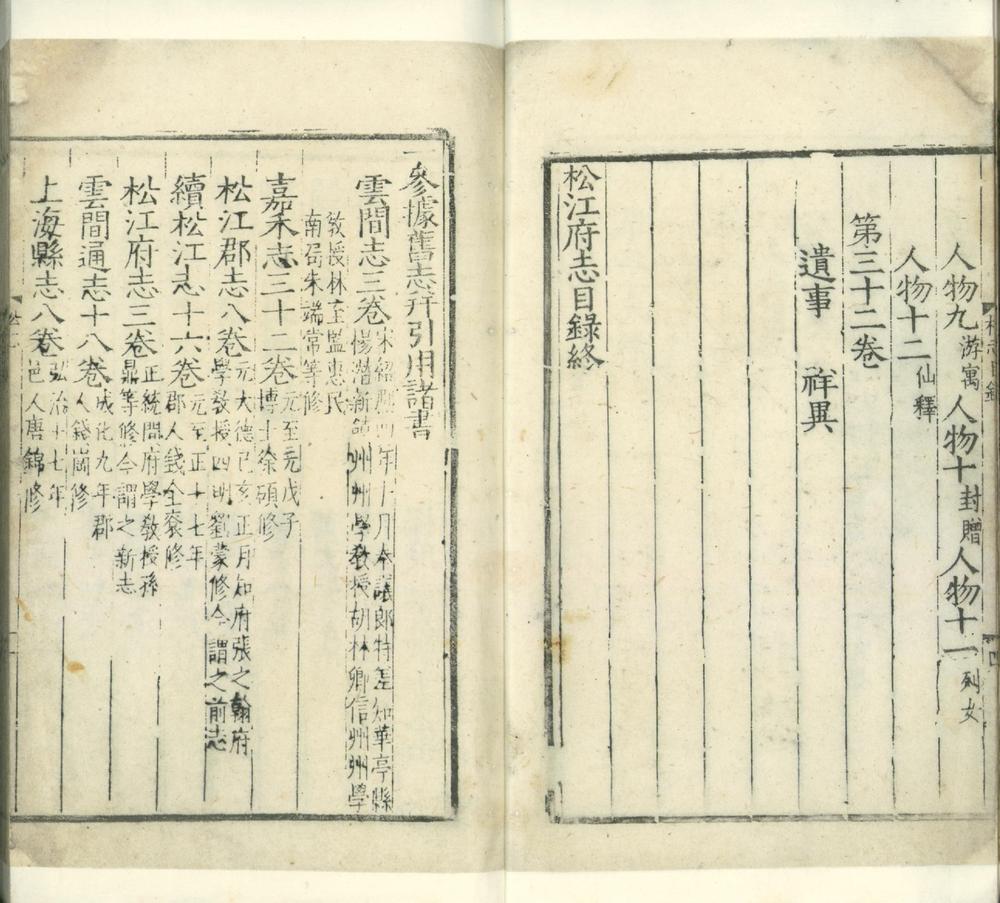 人物九游寓人物十封贈人物十一列女
人物十二仙釋
第三十二卷
遺事 祥異
松江府志目錄終
參據舊志幷引用諸書
雲間志三卷宋紹熈四年十月奉議郎特差知華亭縣
楊潛新 州州學教授胡林卿信州州學
教授林至監惠民
南局朱端常等修
嘉禾志三十二卷元至元戊子
博士徐碩修
松江郡志八卷元大德己亥正月知府張之翰府
學教授四明劉蒙修今謂之前志
續松江志十六卷元至正十七年
郡人錢全衮修
松江府志三卷正統間府學教授孫
鼎等修今謂之新志
雲間通志十八卷成化九年郡
人錢岡修
上海縣志八卷弘治十七年
邑人唐錦修